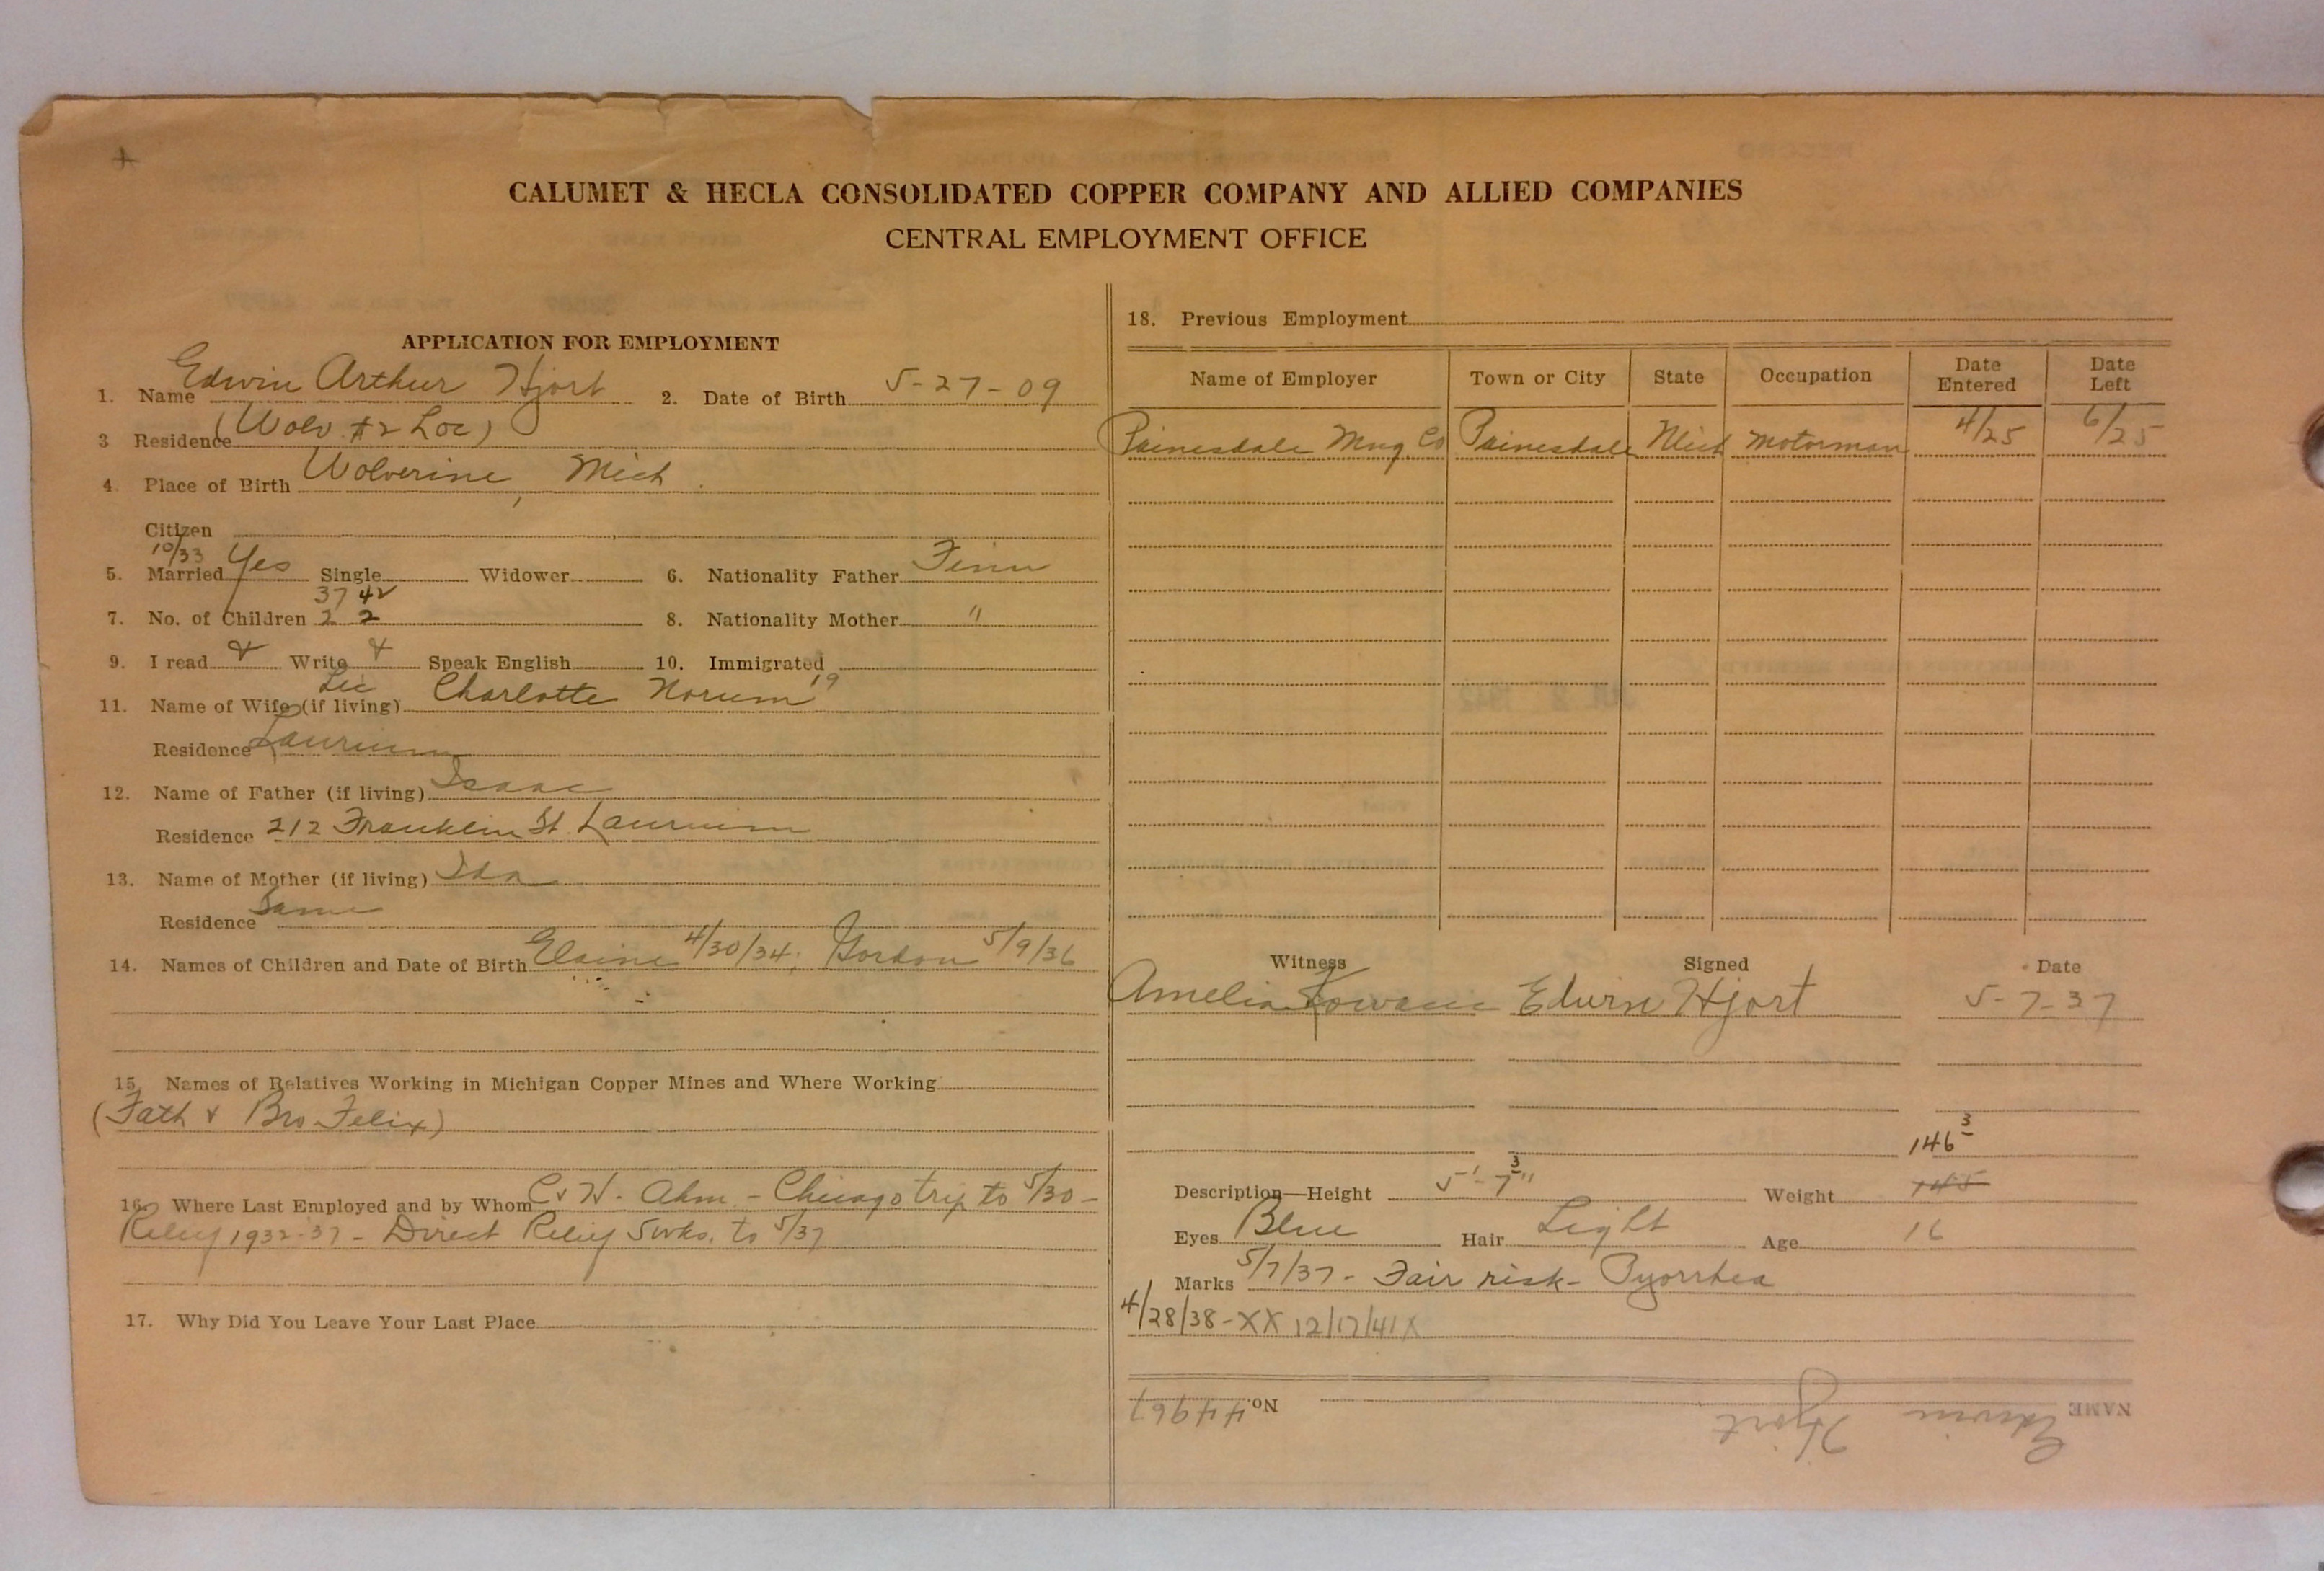 CALUMET & HECLA CONSOLIDATED COPPER COMPANY AND ALLIED COMPANIES
CENTRAL EMPLOYMENT OFFICE
APPLICATION FOR EMPLOYMENT
1. Name Edwin Arthur Hjort 2. Date of Birth 5-27-09
3 Residence (Wolv. #2 Loc)
4. Place of Birth Wolverine, Mich
Citizen
10/33
5. Married Yes Single Widower 6. Nationality Father Finn
37 42
7. No. of Children 2 2 8. Nationality Mother "
9. I read & Write & Speak English 10. Immigrated
19
11. Name of Wife (if living) Charlotte Norum
Residence Laurium
12. Name of Father (if living) Isaac
Residence 212 Franklin St. Laurium
13. Name of Mother (if living) Ida
Residence Same
14. Names of Children and Date of Birth Elaine 4/30/34; Gordon 5/9/36
15. Names of Relatives Working in Michigan Copper Mines and Where Working
(Fath & Bro Felix)
16. Where Last Employed and by Whom Ahm. - Chicago trip to 5/30 -
Relief 1932-37 - Direct Relief 5wks. to 5/37
17. Why Did You Leave Your Last Place
18. Previous Employment
Name of Employer Town or City State Occupation Date Entered Date Left
Painesdale Mng. Co Painesdale Mich motorman 4/25 6/25
Witness Signed Date
Amelia Edwin Hjort 5-7-37
146 3
Description—Height 5'-7 3" Weight 145
Eyes Blue Hair Light Age 16
Marks 5/7/37 - Fair risk - Pyorrhea
4/28/38 - XX 12/17/41 X
NAME Edwin Hjort No. 44967